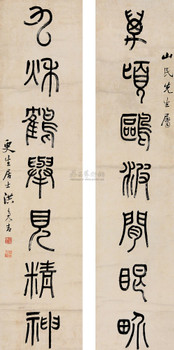 山民先生屬
萬頃鷗波閒眼界
九秋鶴舉見精神
更生居士洪亮吉